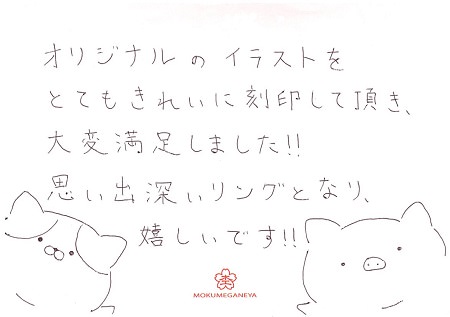 オリジナルのイラストを
とてもきれいに刻印して頂き、
大変満足しました!!
思い出深いリングとなり、
嬉しいです!!
MOKUMEGANEYA